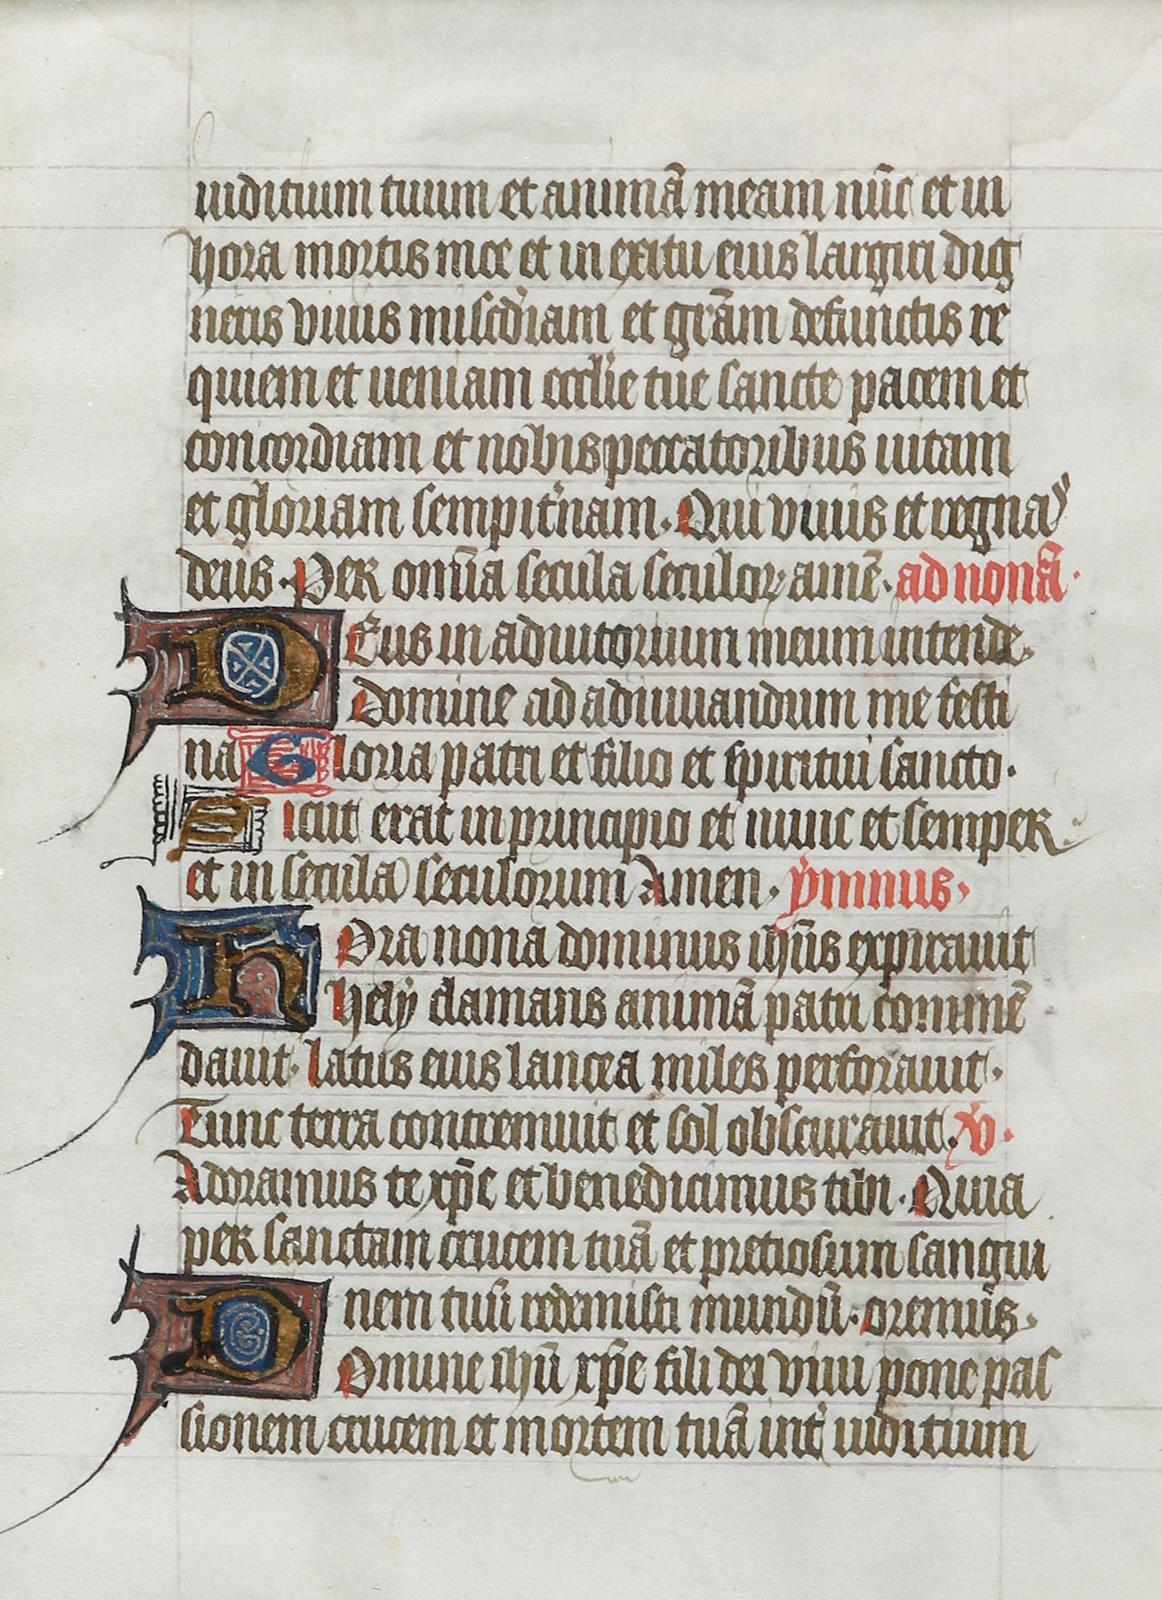 iuditium tuum et animā meam nūc et in
hora mortis mee et in exitu eius largiri dig
neris viuis misc̄diam et grām defunctis re
quiem et ueniam eccl̄ie tue sancte pacem et
concordiam et nobis peccatoribus uitam
et gloriam sempit̄nam. Qui viuis et regnas
deus. Per om̄ia secula seculoꝝ amē. ad nonā.
Deus in adiutorium meum intende.
domine ad adiuuandum me festi
na Gloria patri et filio et spiritui sancto.
Sicut erat in principio et nunc et semper.
et in secula seculorum Amen. ẏmnus.
Hora nona dominus ihūs expirauit
helẏ clamans animā patri commē
dauit. latus eius lancea miles perforauit.
Tunc terra contremuit et sol obscurauit. ℣.
Adoramus te xp̄e et benedicimus tibi. Quia
per sanctam crucem tuā et pretiosum sangui
nem tuū redemisti mundū. oremus.
Domine ihū xp̄e fili dei viui pone pas
sionem crucem et mortem tuā int̄ iuditium